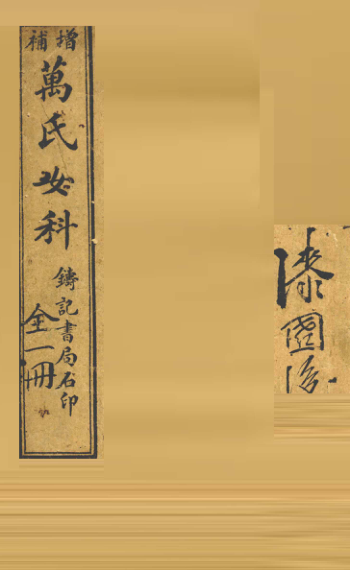 增補
萬氏女科
鑄記書局石印
全一冊
漆國